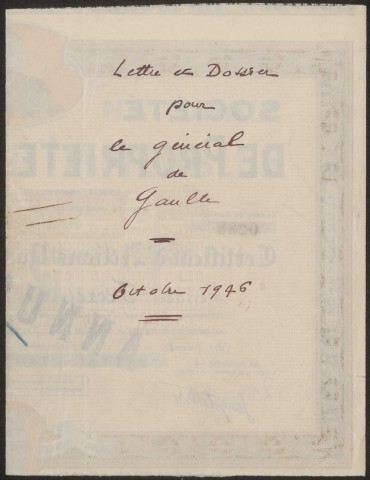 Lettre et Dossier
pour
le général
de
Gaulle
Octobre 1946
SOCIÉTÉ
DE PROPRIÉTÉ